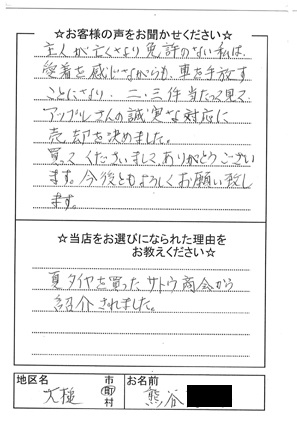 ☆お客様の声をお聞かせください☆
主人が亡くなり免許のない私は、
愛着を感じながらも、車を手放す
ことになり、二・三件当たって見て、
アップルさんの誠実な対応に
売却を決めました。
買ってくださいましてありがとうござい
ます。今後ともよろしくお願い致し
ます。
☆当店をお選びになられた理由を
お教えください☆
夏タイヤを買ったサトウ商会から
紹介されました。
地区名
大槌
市
町
村
お名前
熊谷